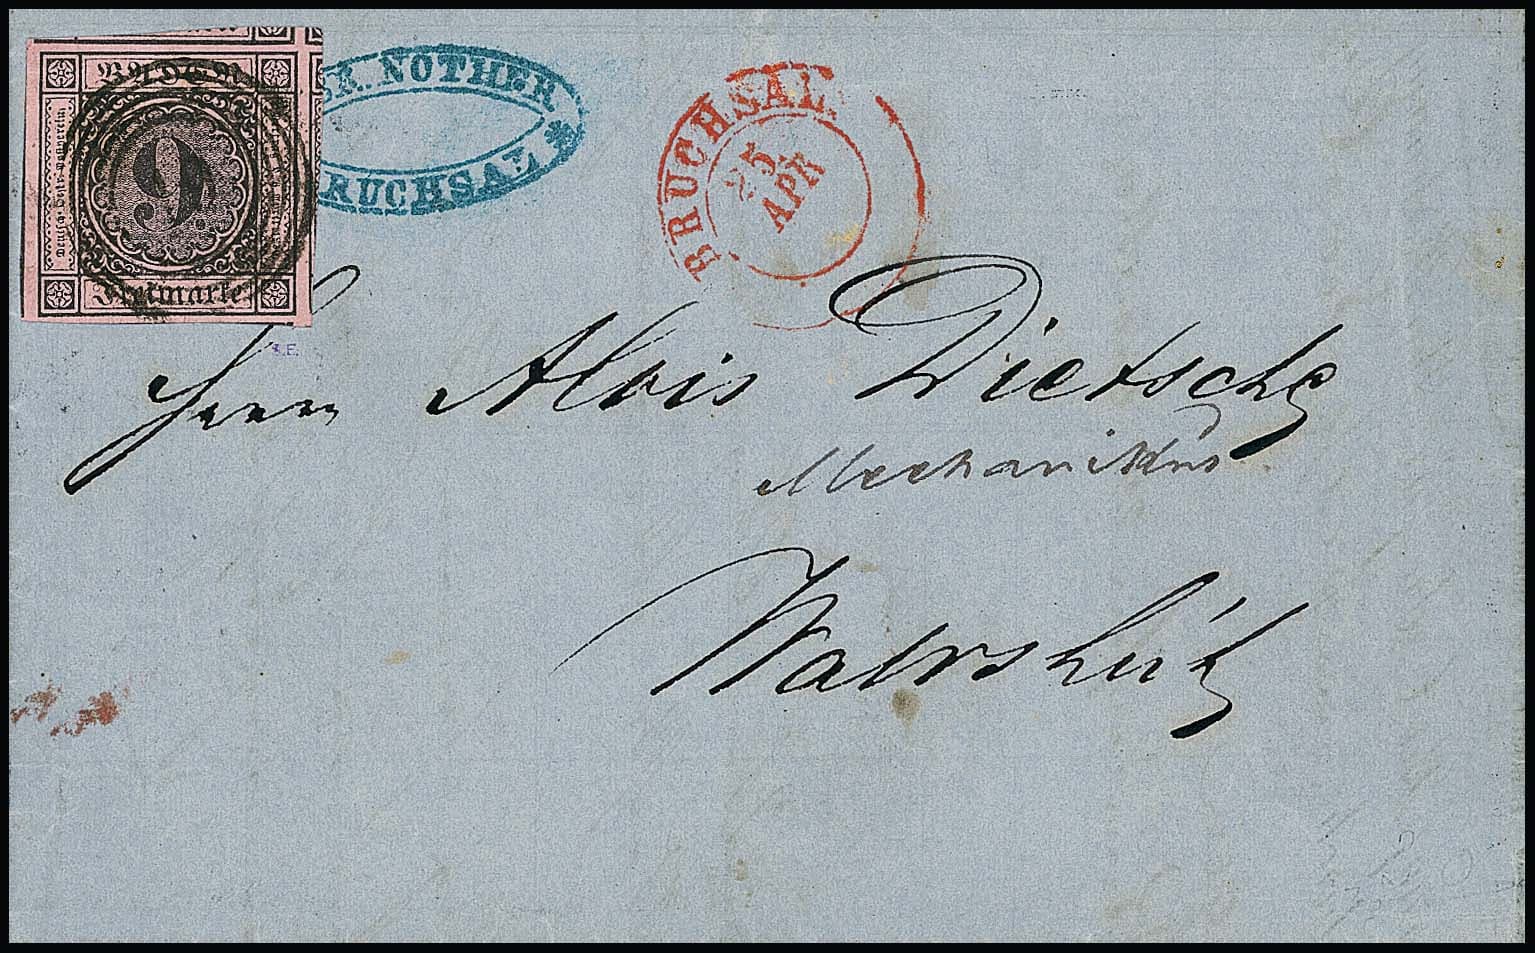 BADEN
Deutsch. Östr. Postverein
9.
Freimarke
A. NOTHER
BRUCHSAL
BRUCHSAL
25
APR
Herrn Alois Dietsche
Mechanikus
Waldshut